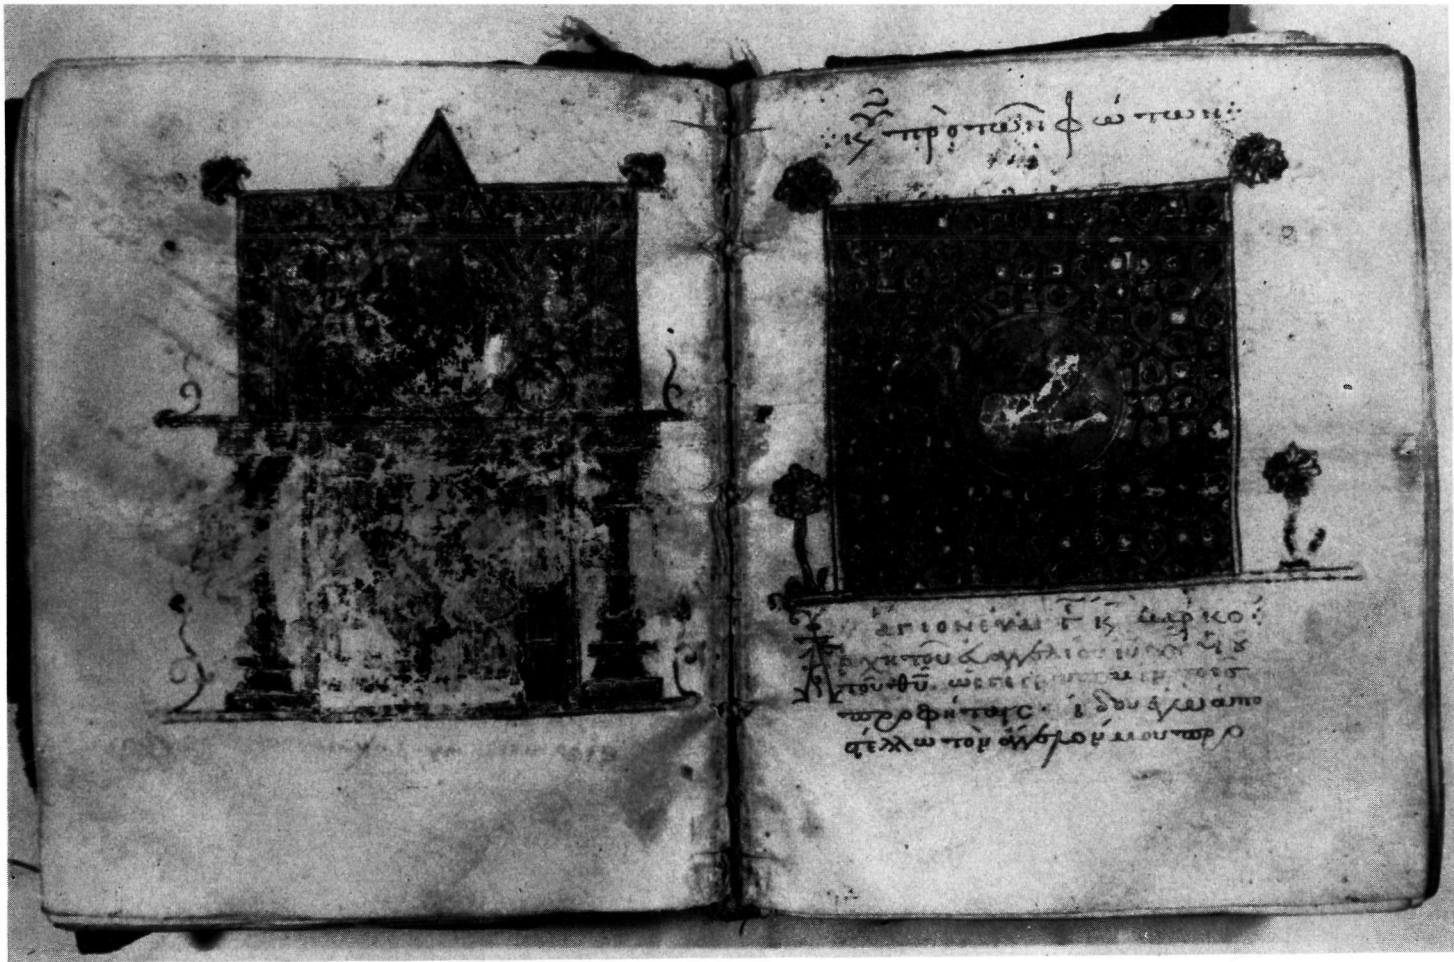 πρὸ τῶν φώτων:
ΑΓΙΟΝ ΕΥΑΓ Κ ΜΑΡΚΟ:
Ἀρχὴ τοῦ εὐαγγελίου ἰυ χυ υἱοῦ
τοῦ θυ. ὡς γέγραπται ἐν τοῖς
προφήταις. ἰδοὺ ἐγὼ ἀπο
στέλλω τὸν ἄγγελόν μου πρὸ